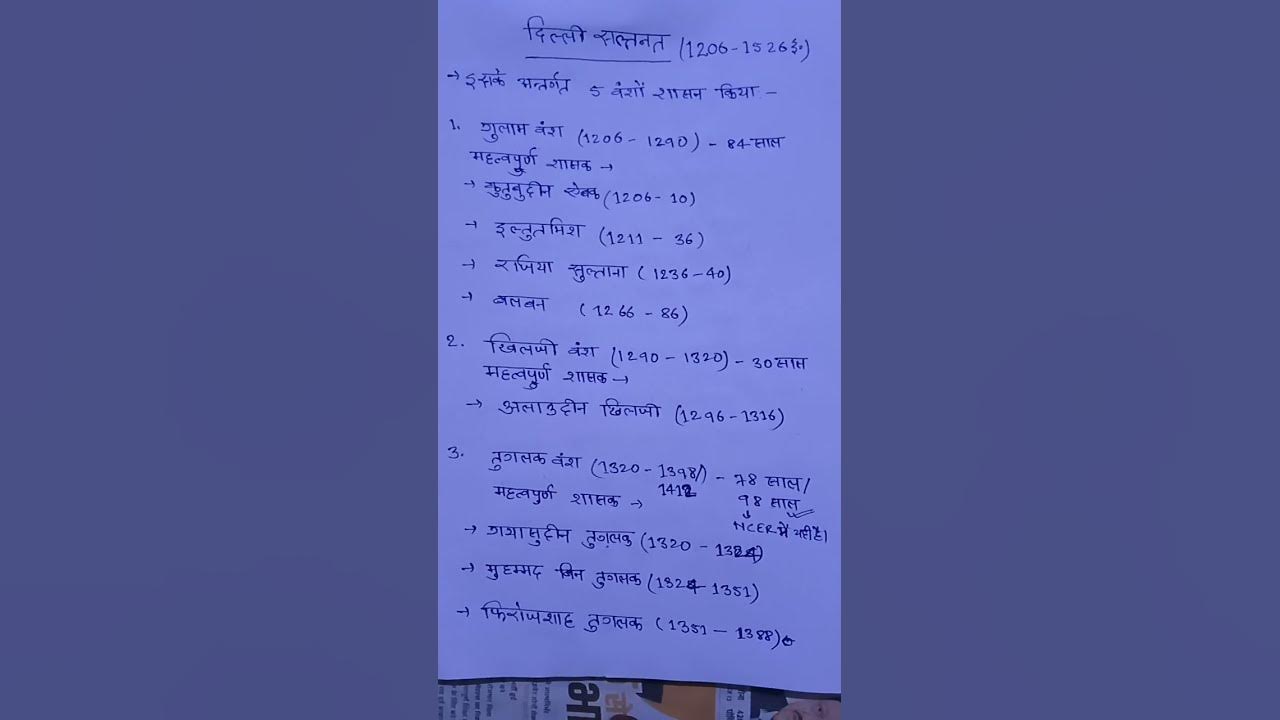 दिल्ली सल्तनत (1206-1526ई०)
→ इसके अन्तर्गत 5 वंशों शासन किया -
1. गुलाम वंश (1206 - 1290) - 84 साल
महत्वपूर्ण शासक →
→ कुतुबुद्दीन ऐबक (1206-10)
→ इल्तुतमिश (1211 - 36)
→ रजिया सुल्ताना (1236-40)
→ बलबन (1266 - 86)
2. खिलजी वंश (1290 - 1320) - 30 साल
महत्वपूर्ण शासक →
→ अलाउद्दीन खिलजी (1296-1316)
3. तुगलक वंश (1320 - 1398/) - 78 साल/
1412 98 साल
महत्वपूर्ण शासक →
NCER में यही है।
→ गयासुद्दीन तुग़लक (1320 - 1324)
→ मुहम्मद बिन तुगलक (1324 1351)
→ फिरोजशाह तुगलक (1351 - 1388)